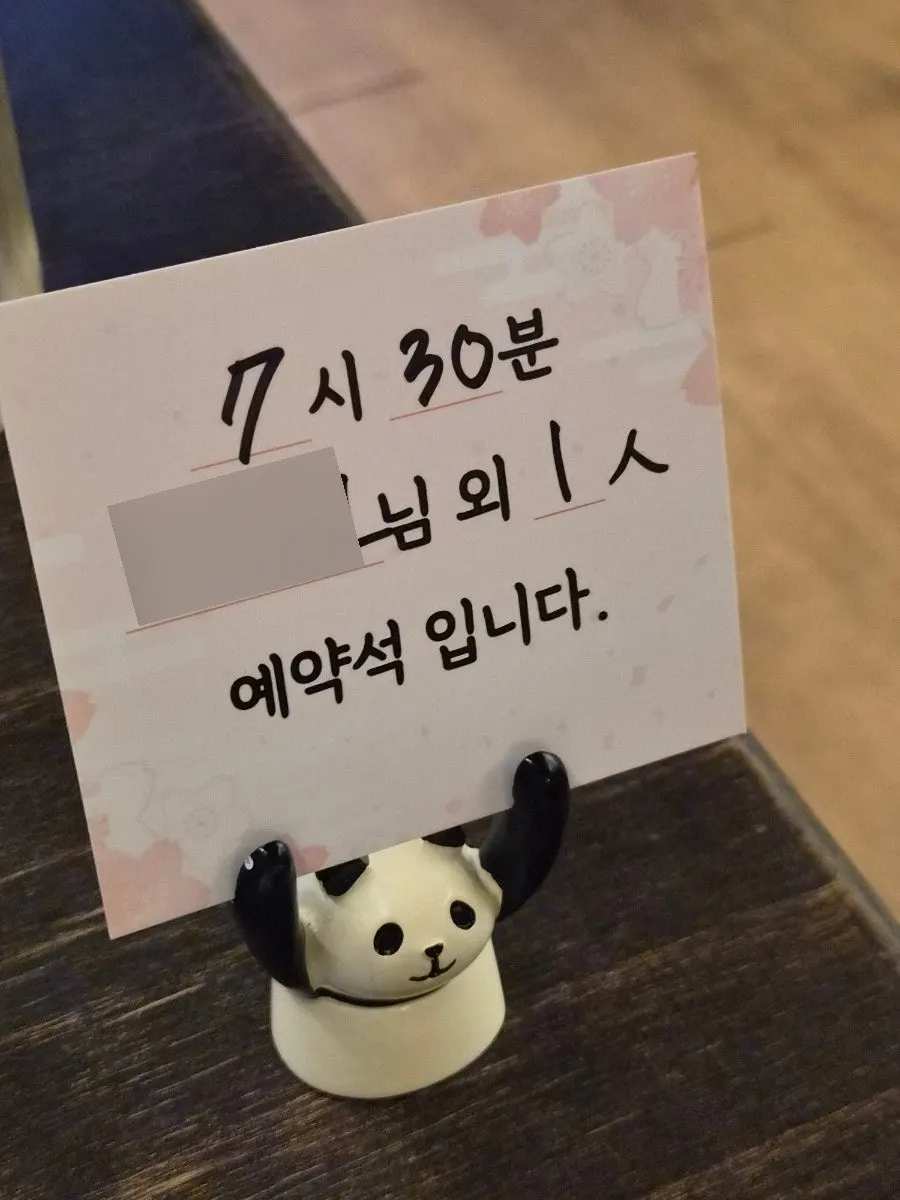 7시 30분
님 외 1人
예약석 입니다.